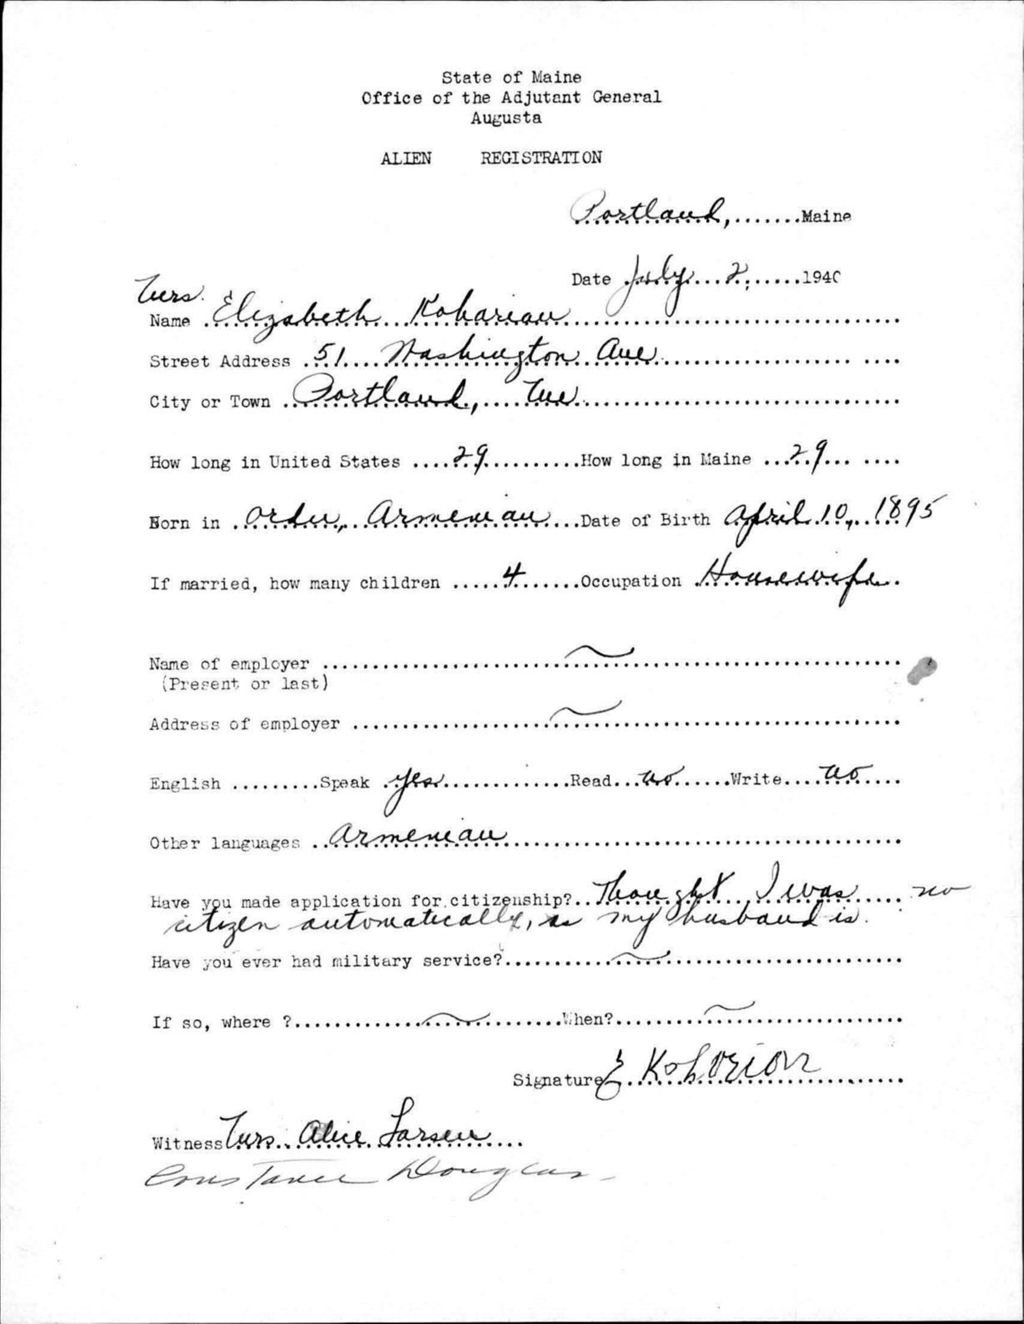 State of Maine
Office of the Adjutant General
Augusta
ALIEN REGISTRATION
Portland, .......Maine
Date July 2, 1940
Mrs.
Name Elizabeth Koharian
Street Address 51 Washington Ave
City or Town Portland, Me
How long in United States 29 How long in Maine 29
Born in Ordu, Armenian Date of Birth April 10, 1895
If married, how many children 4 Occupation Housewife
Name of employer
(Present or last)
Address of employer
English Speak yes Read no Write no
Other languages Armenian
Have you made application for citizenship? Thought I was no
citizen automatically, as my husband is.
Have you ever had military service?
If so, where ? When?
Signature E Kohorion
Witness Mrs. Alice Larsen
Constance Douglas